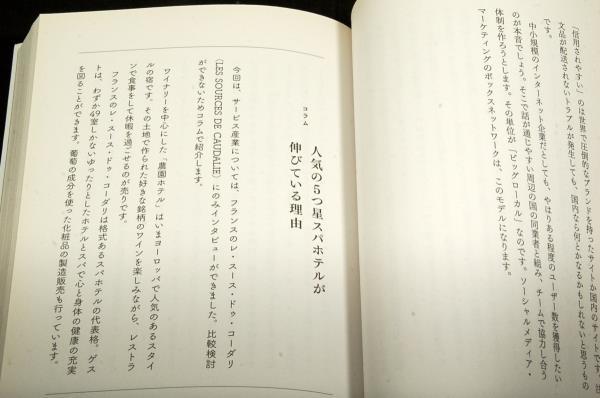 「信用されやすい」のは世界で圧倒的なブランドを持ったサイトか国内のサイトです。
文品が配送されないトラブルが発生しても、国内なら何とかなるかもしれないと思うもの
です。
中小規模のインターネット企業だとしても、やはりある程度のユーザー数を獲得したい
のが本音でしょう。そこで話が通じやすい周辺の国の同業者と組み、チームで協力し合う
体制を作ろうとします。その単位が「ビッグローカル」なのです。ソーシャルメディア・
マーケティングのボックスネットワークは、このモデルになります。
コラム
人気の5つ星スパホテルが
伸びている理由
今回は、サービス産業については、フランスのレ・スース・ドゥ・コーダリ
(LES SOURCES DE CAUDALIE)にのみインタビューができました。比較検討
ができないためコラムで紹介します。
ワイナリーを中心にした「農園ホテル」はいまヨーロッパで人気のあるスタイ
ルの宿です。その土地で作られた好きな銘柄のワインを楽しみながら、レストラ
ンで食事をして休暇を過ごせるのが売りです。
フランスのレ・スース・ドゥ・コーダリは格式あるスパホテルの代表格。ゲス
トは、わずか49室しかないゆったりとしたホテルとスパで心と身体の健康の充実
を図ることができます。葡萄の成分を使った化粧品の製造販売も行っています。